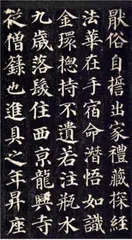 厭俗自誓出家禮藏探經
法華在手宿命潛悟如識
金環揔持不遺若注瓶水
九歲落髮住西京龍興寺
從僧籙也進具之年昇座